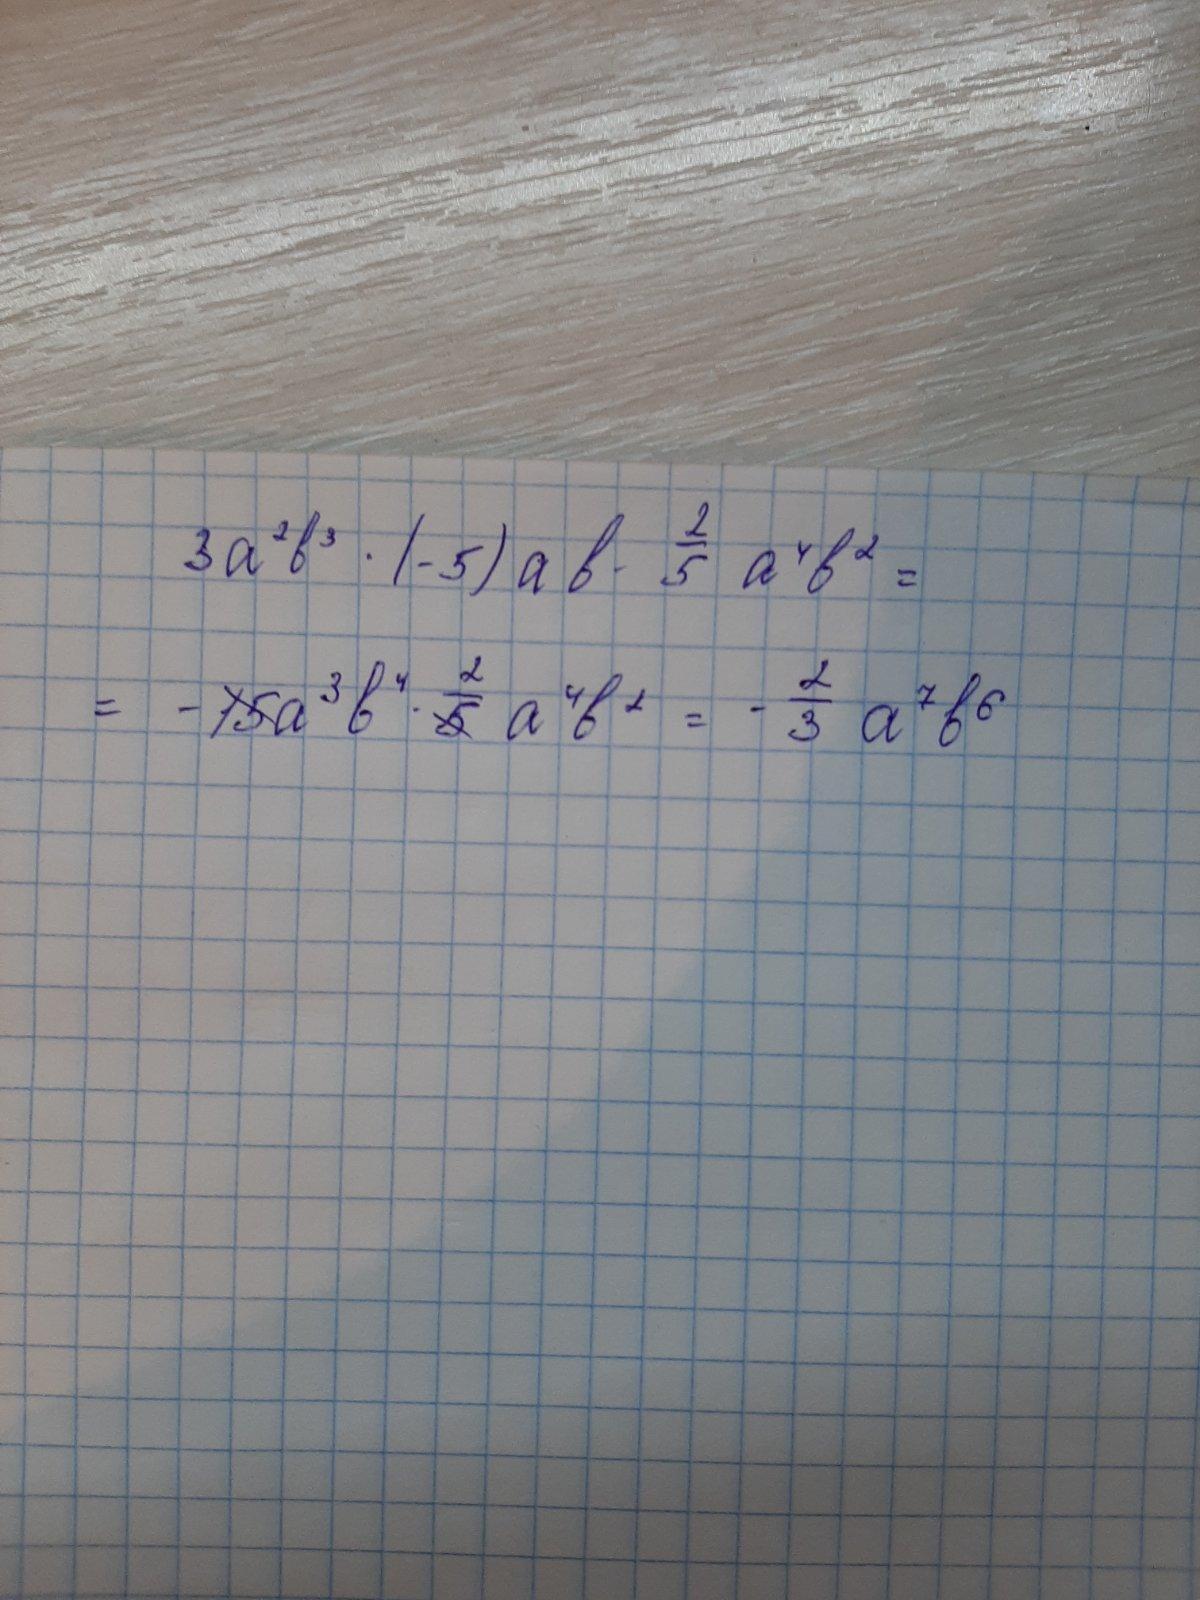 3a²b³ · (-5) ab · 2/5 a⁴b² =
= -15a³b⁴ · 2/5 a⁴b² = - 2/3 a⁷b⁶